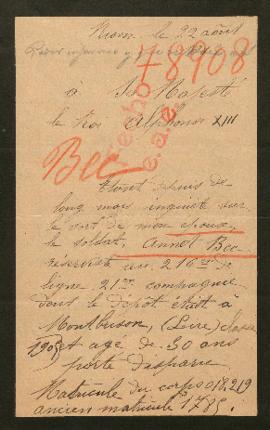 Riom le 22 août
78908
à Sa Majesté
le Roi Alphonse XIII
Bec
Etant depuis de
long mois inquiete sur
le sort de mon epoux,
le soldat, Annet Bec
réserviste au 216me de
ligne 21me compagnie
dont le dépot était à
Montbrison, (Loire) classe
1905 et agé de 30 ans
porté disparu
Matricule du corps 018,219
ancien matricule 1785.